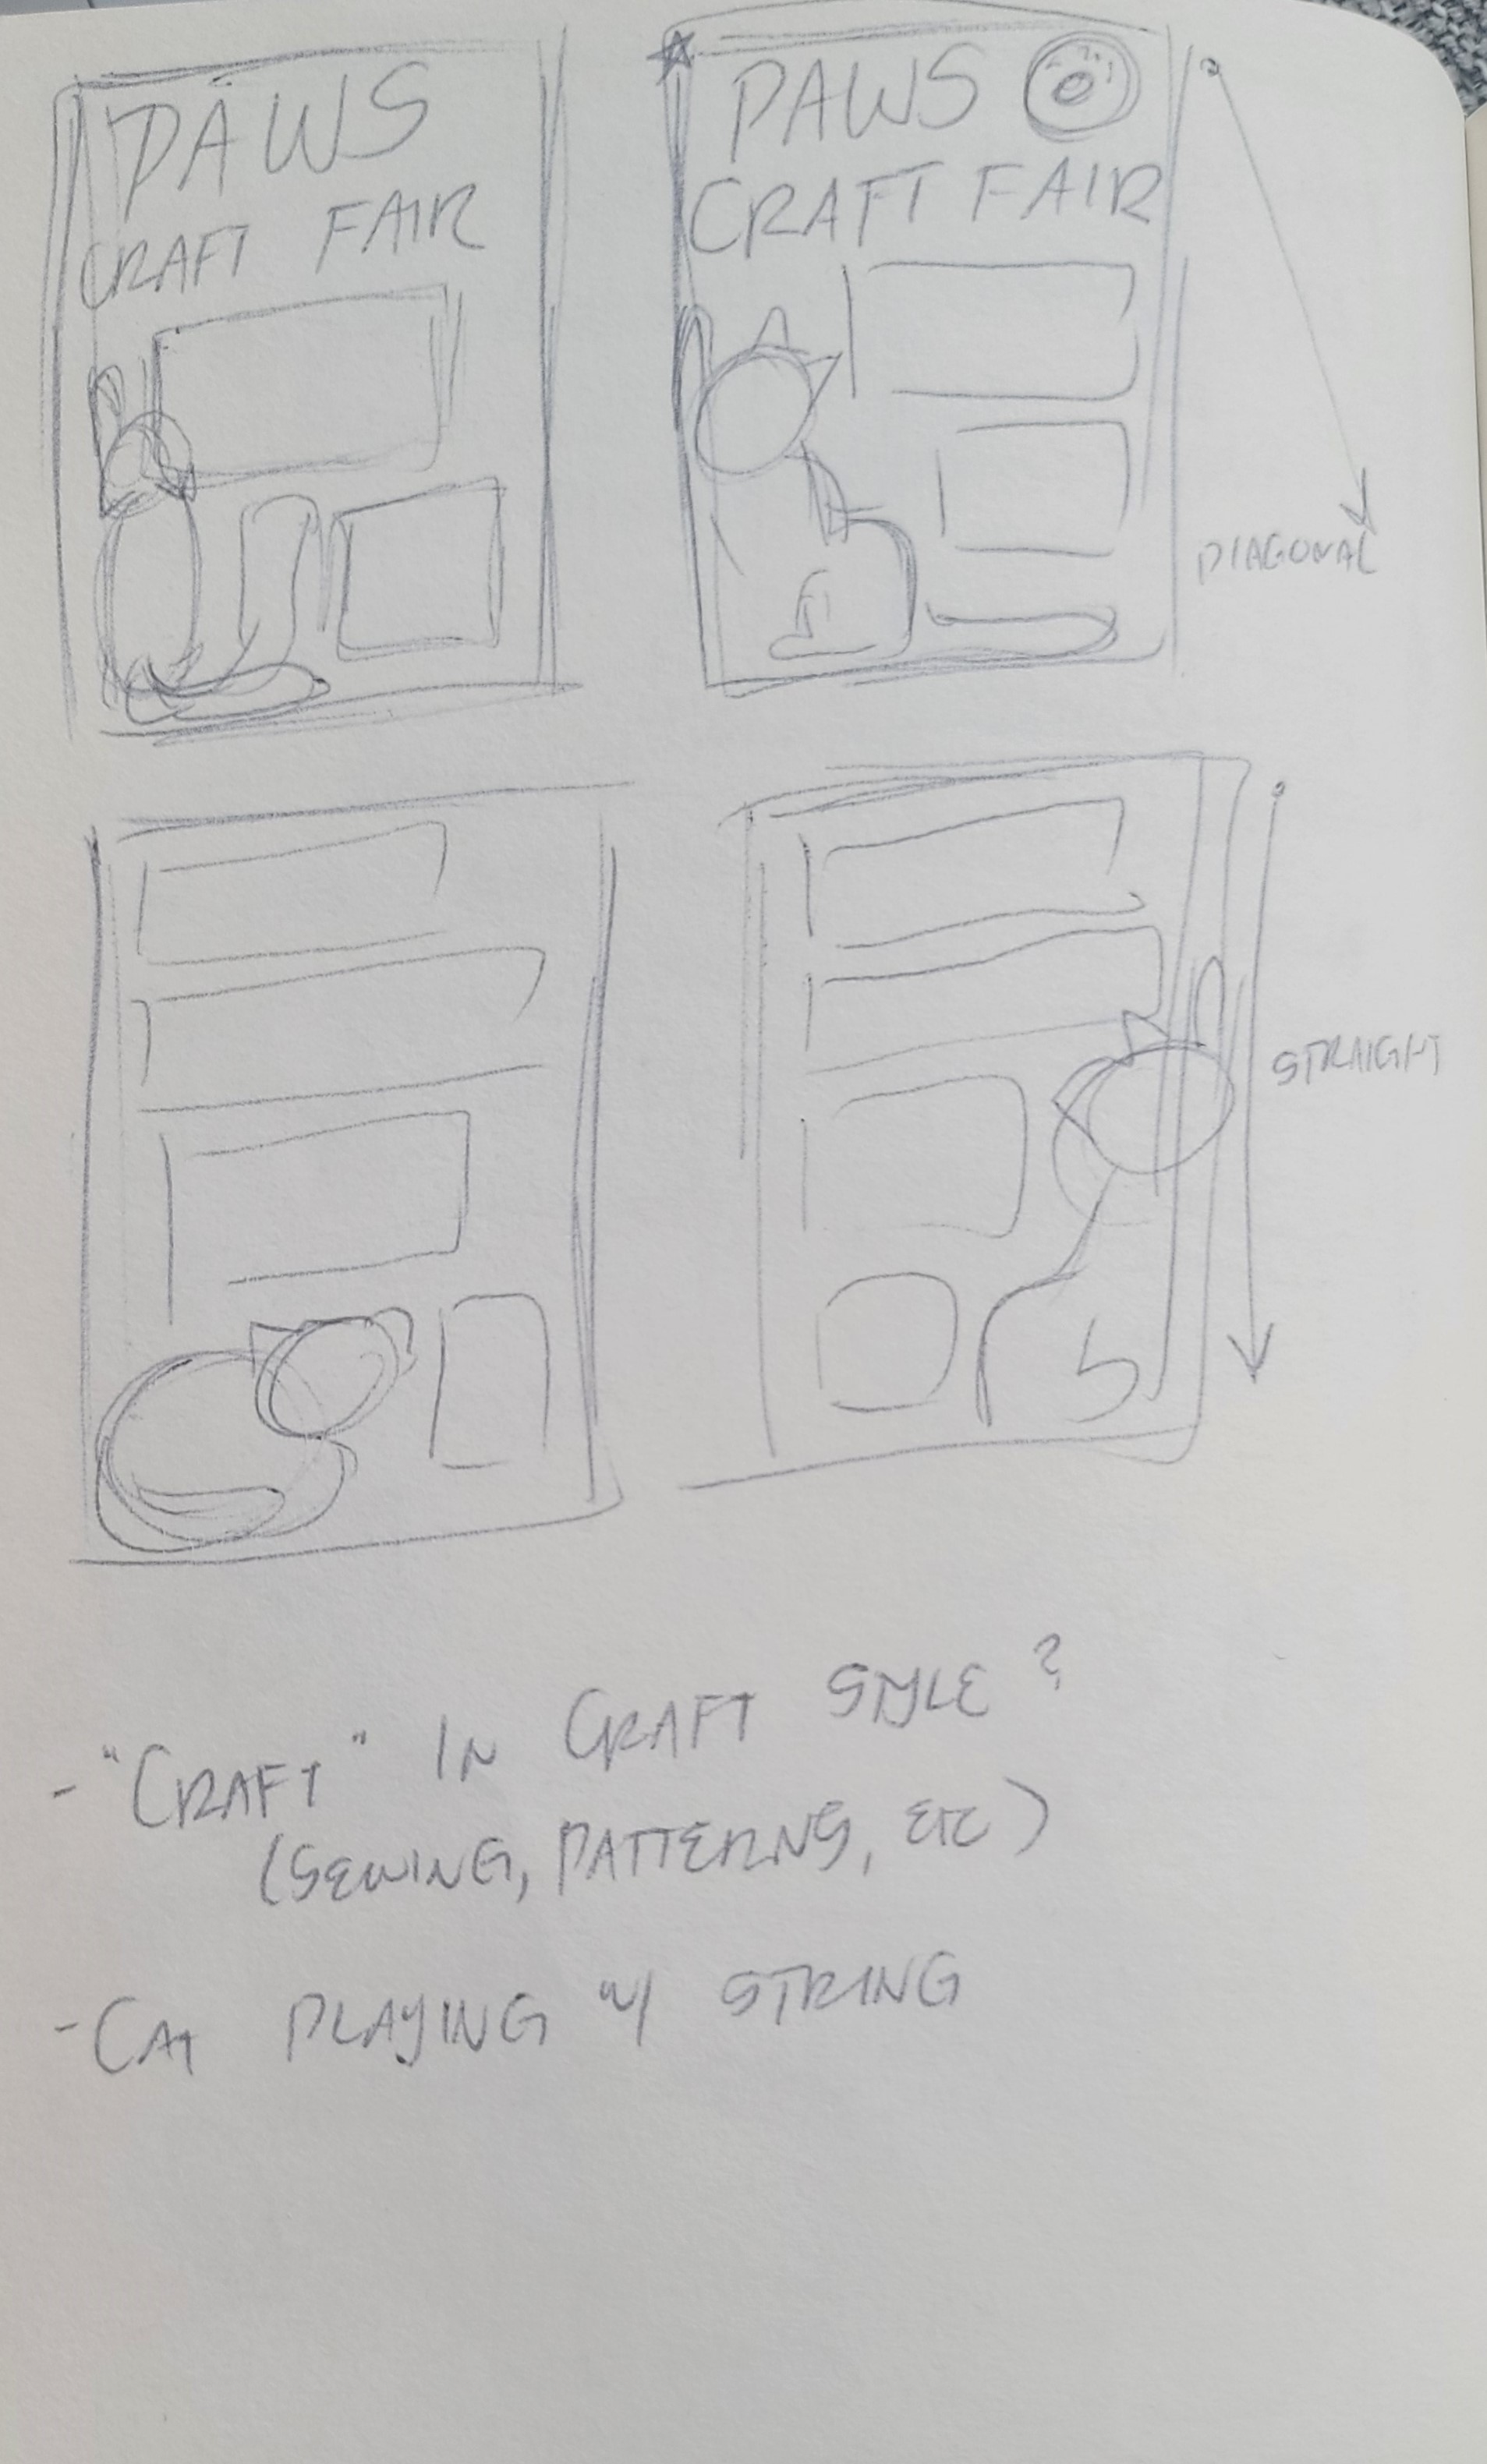 PAWS
CRAFT FAIR
PAWS
CRAFT FAIR
DIAGONAL
STRAIGHT
- "CRAFT" IN CRAFT STYLE?
(SEWING, PATTERNS, ETC)
- CAT PLAYING W/ STRING